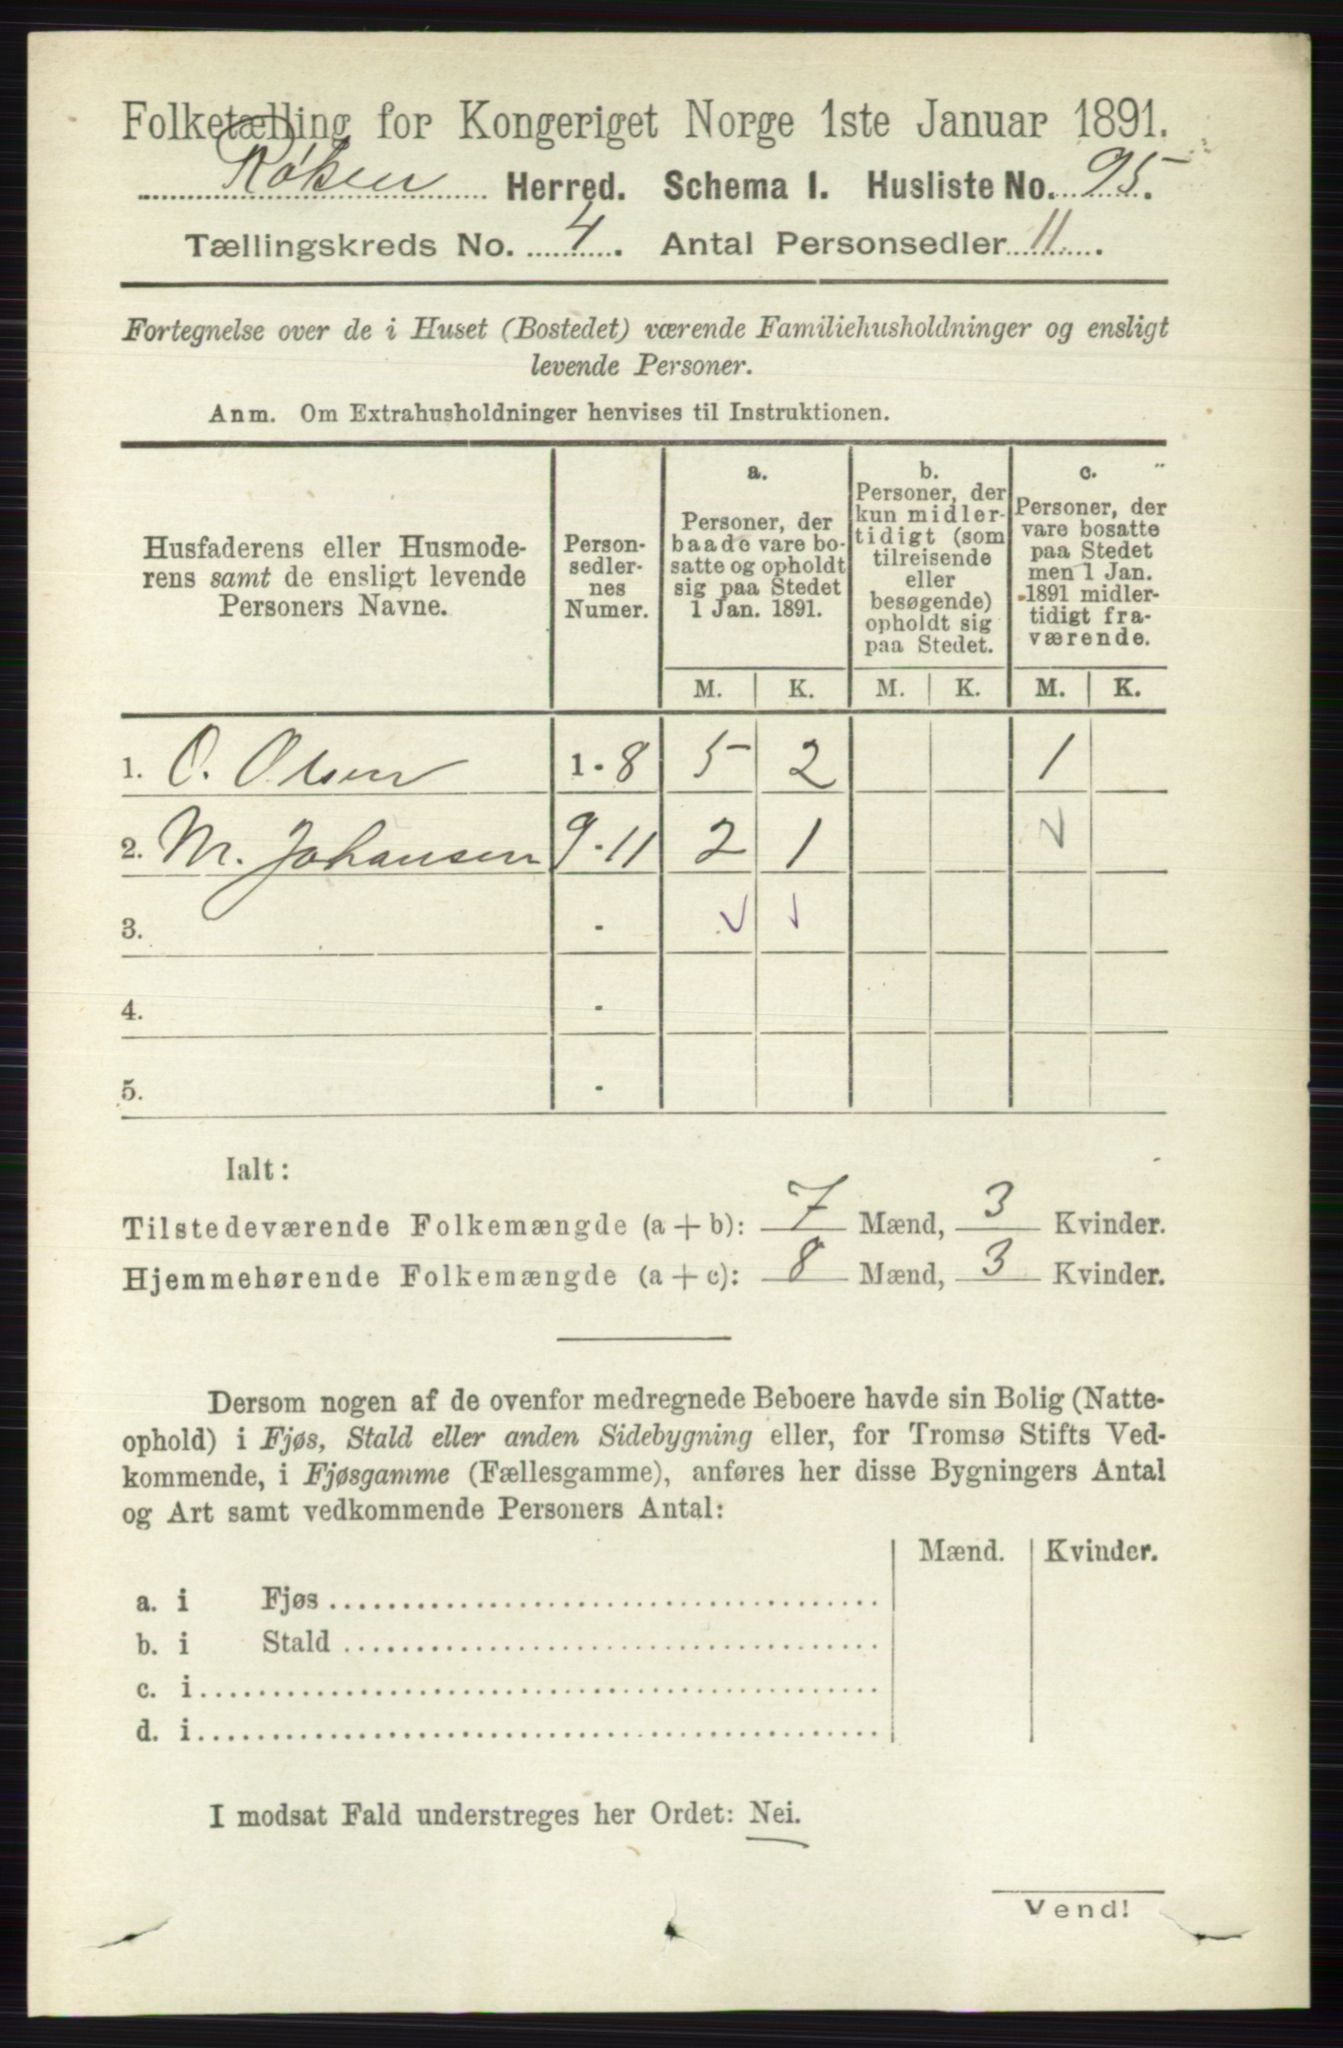 Folketælling for Kongeriget Norge 1ste Januar 1891.
Røken Herred. Schema I. Husliste No. 95.
Tællingskreds No. 4. Antal Personsedler 11.
Fortegnelse over de i Huset (Bostedet) værende Familiehusholdninger og ensligt
levende Personer.
Anm. Om Extrahusholdninger henvises til Instruktionen.
Husfaderens eller Husmode-
rens samt de ensligt levende
Personers Navne.
Person-
sedler-
nes
Numer.
a.
Personer, der
baade vare bo-
satte og opholdt
sig paa Stedet
1 Jan. 1891.
b.
Personer, der
kun midler-
tidigt (som
tilreisende
eller
besøgende)
opholdt sig
paa Stedet.
c.
Personer, der
vare bosatte
paa Stedet
men 1 Jan.
1891 midler-
tidigt fra-
værende.
M. K. M. K. M. K.
1. O. Olsen 1-8 5 2 1
2. M. Johansen 9-11 2 1
3. -
4. -
5. -
Ialt:
Tilstedeværende Folkemængde (a + b): 7 Mænd, 3 Kvinder.
Hjemmehørende Folkemængde (a + c): 8 Mænd, 3 Kvinder.
Dersom nogen af de ovenfor medregnede Beboere havde sin Bolig (Natte-
ophold) i Fjøs, Stald eller anden Sidebygning eller, for Tromsø Stifts Ved-
kommende, i Fjøsgamme (Fællesgamme), anføres her disse Bygningers Antal
og Art samt vedkommende Personers Antal:
Mænd. Kvinder.
a. i Fjøs
b. i Stald
c. i
d. i
I modsat Fald understreges her Ordet: Nei.
Vend!